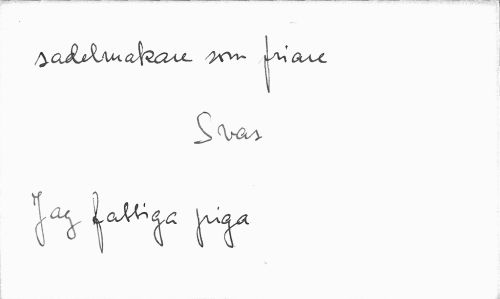 sadelmakare som friare
Svar
Jag fattiga piga